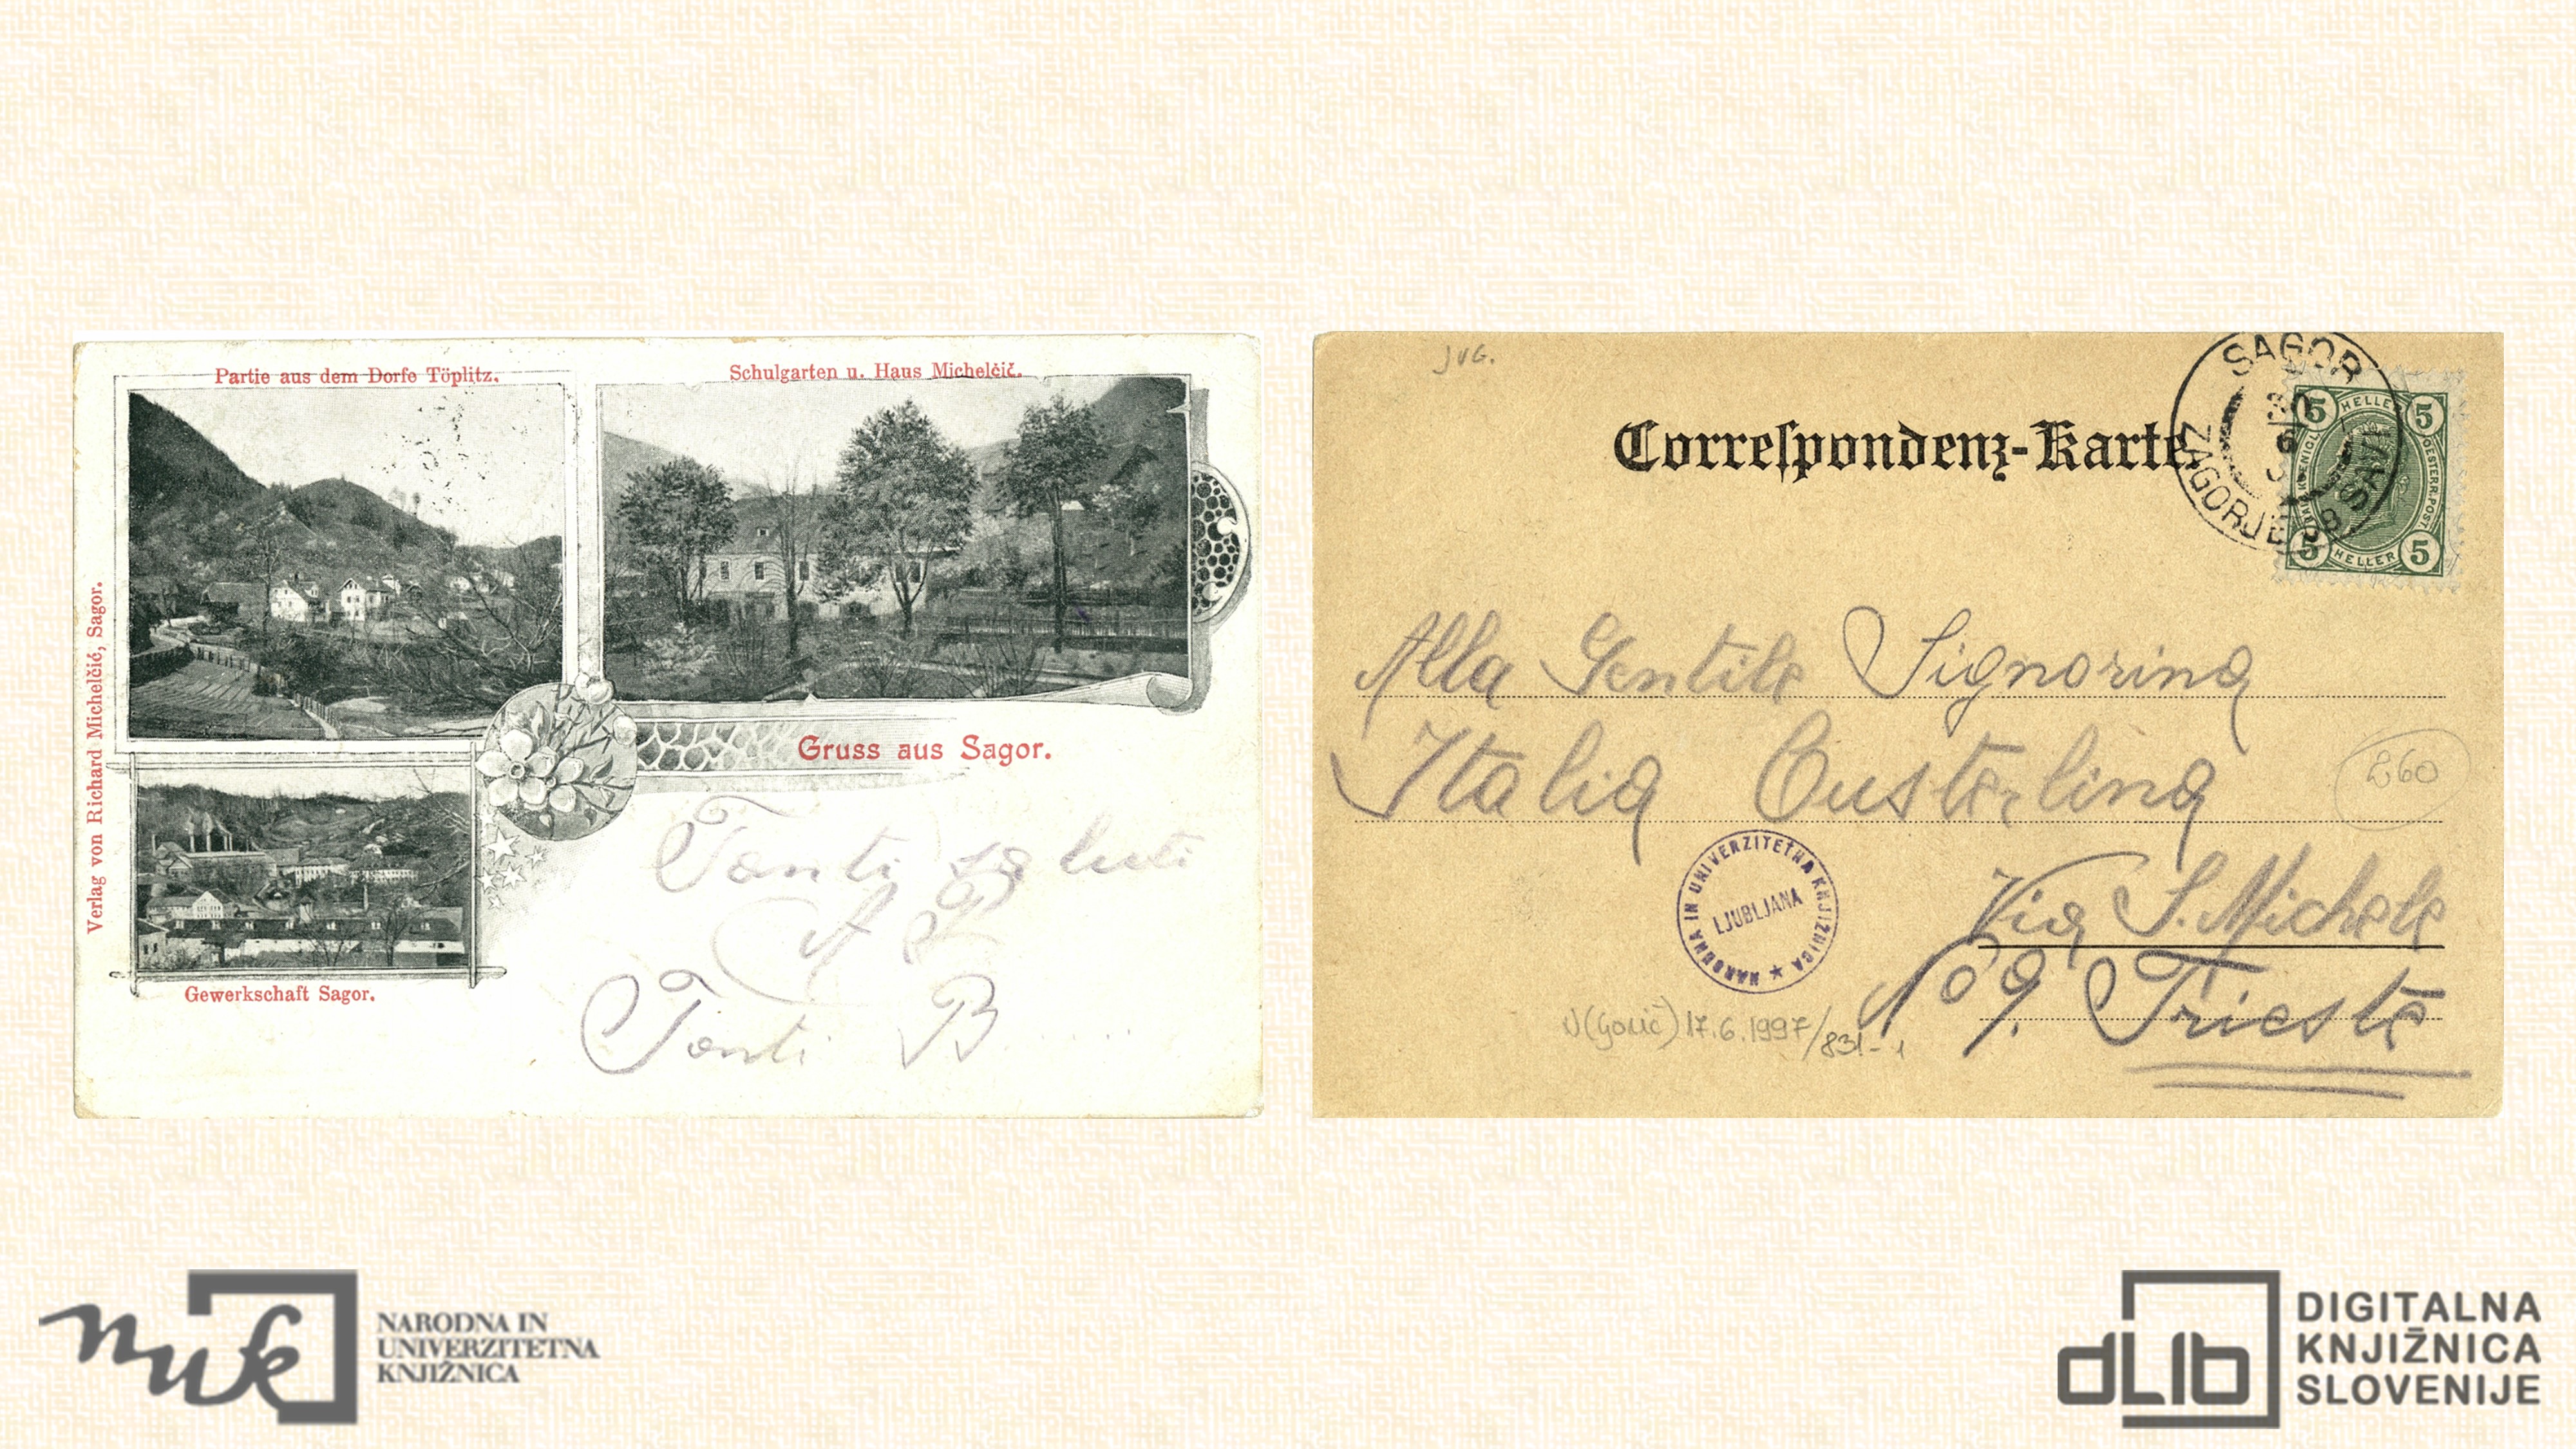 Partie aus dem Dorfe Töplitz.
Schulgarten u. Haus Michelčič.
Verlag von Richard Michelčić, Sagor.
Gruss aus Sagor.
Tanti saluti
Tanti B.....
Gewerkschaft Sagor.
JVG.
Correspondenz-Karte.
SAGOR
ZAGORJE OB SAVI
5 HELLER 5
5 HELLER 5
Alla Gentile Signorina
Italia Custerlina
260
Via S. Michele
No 9. Trieste
NARODNA IN UNIVERZITETNA KNJIŽNICA
LJUBLJANA
17.6.1997/831-1
nuk
NARODNA IN
UNIVERZITETNA
KNJIŽNICA
dLib
DIGITALNA
KNJIŽNICA
SLOVENIJE